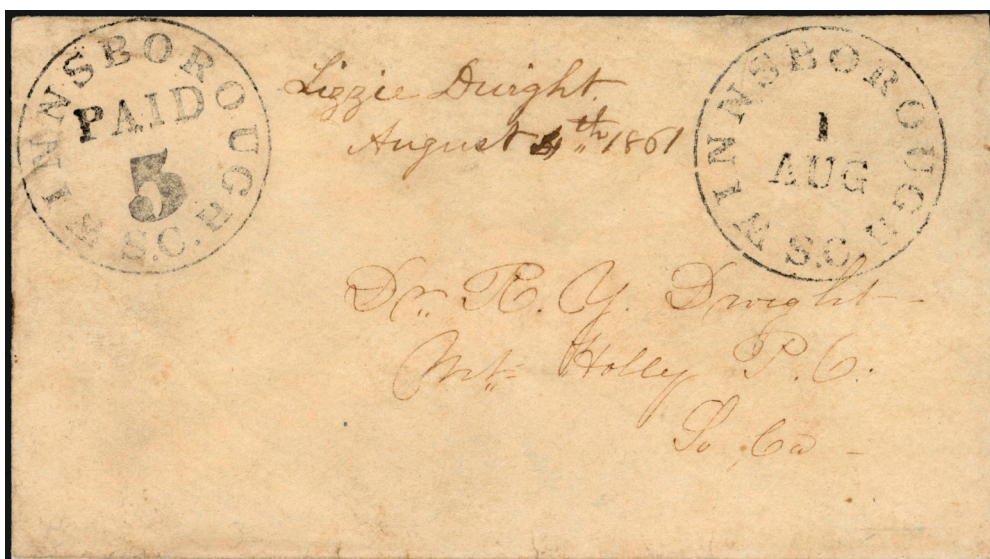 WINNSBOROUGH S.C.
PAID
5
Lizzie Dwight.
August 4th 1861
WINNSBOROUGH S.C.
1
AUG
Dr. R. Y. Dwight
Mt. Holly P.O.
So Ca